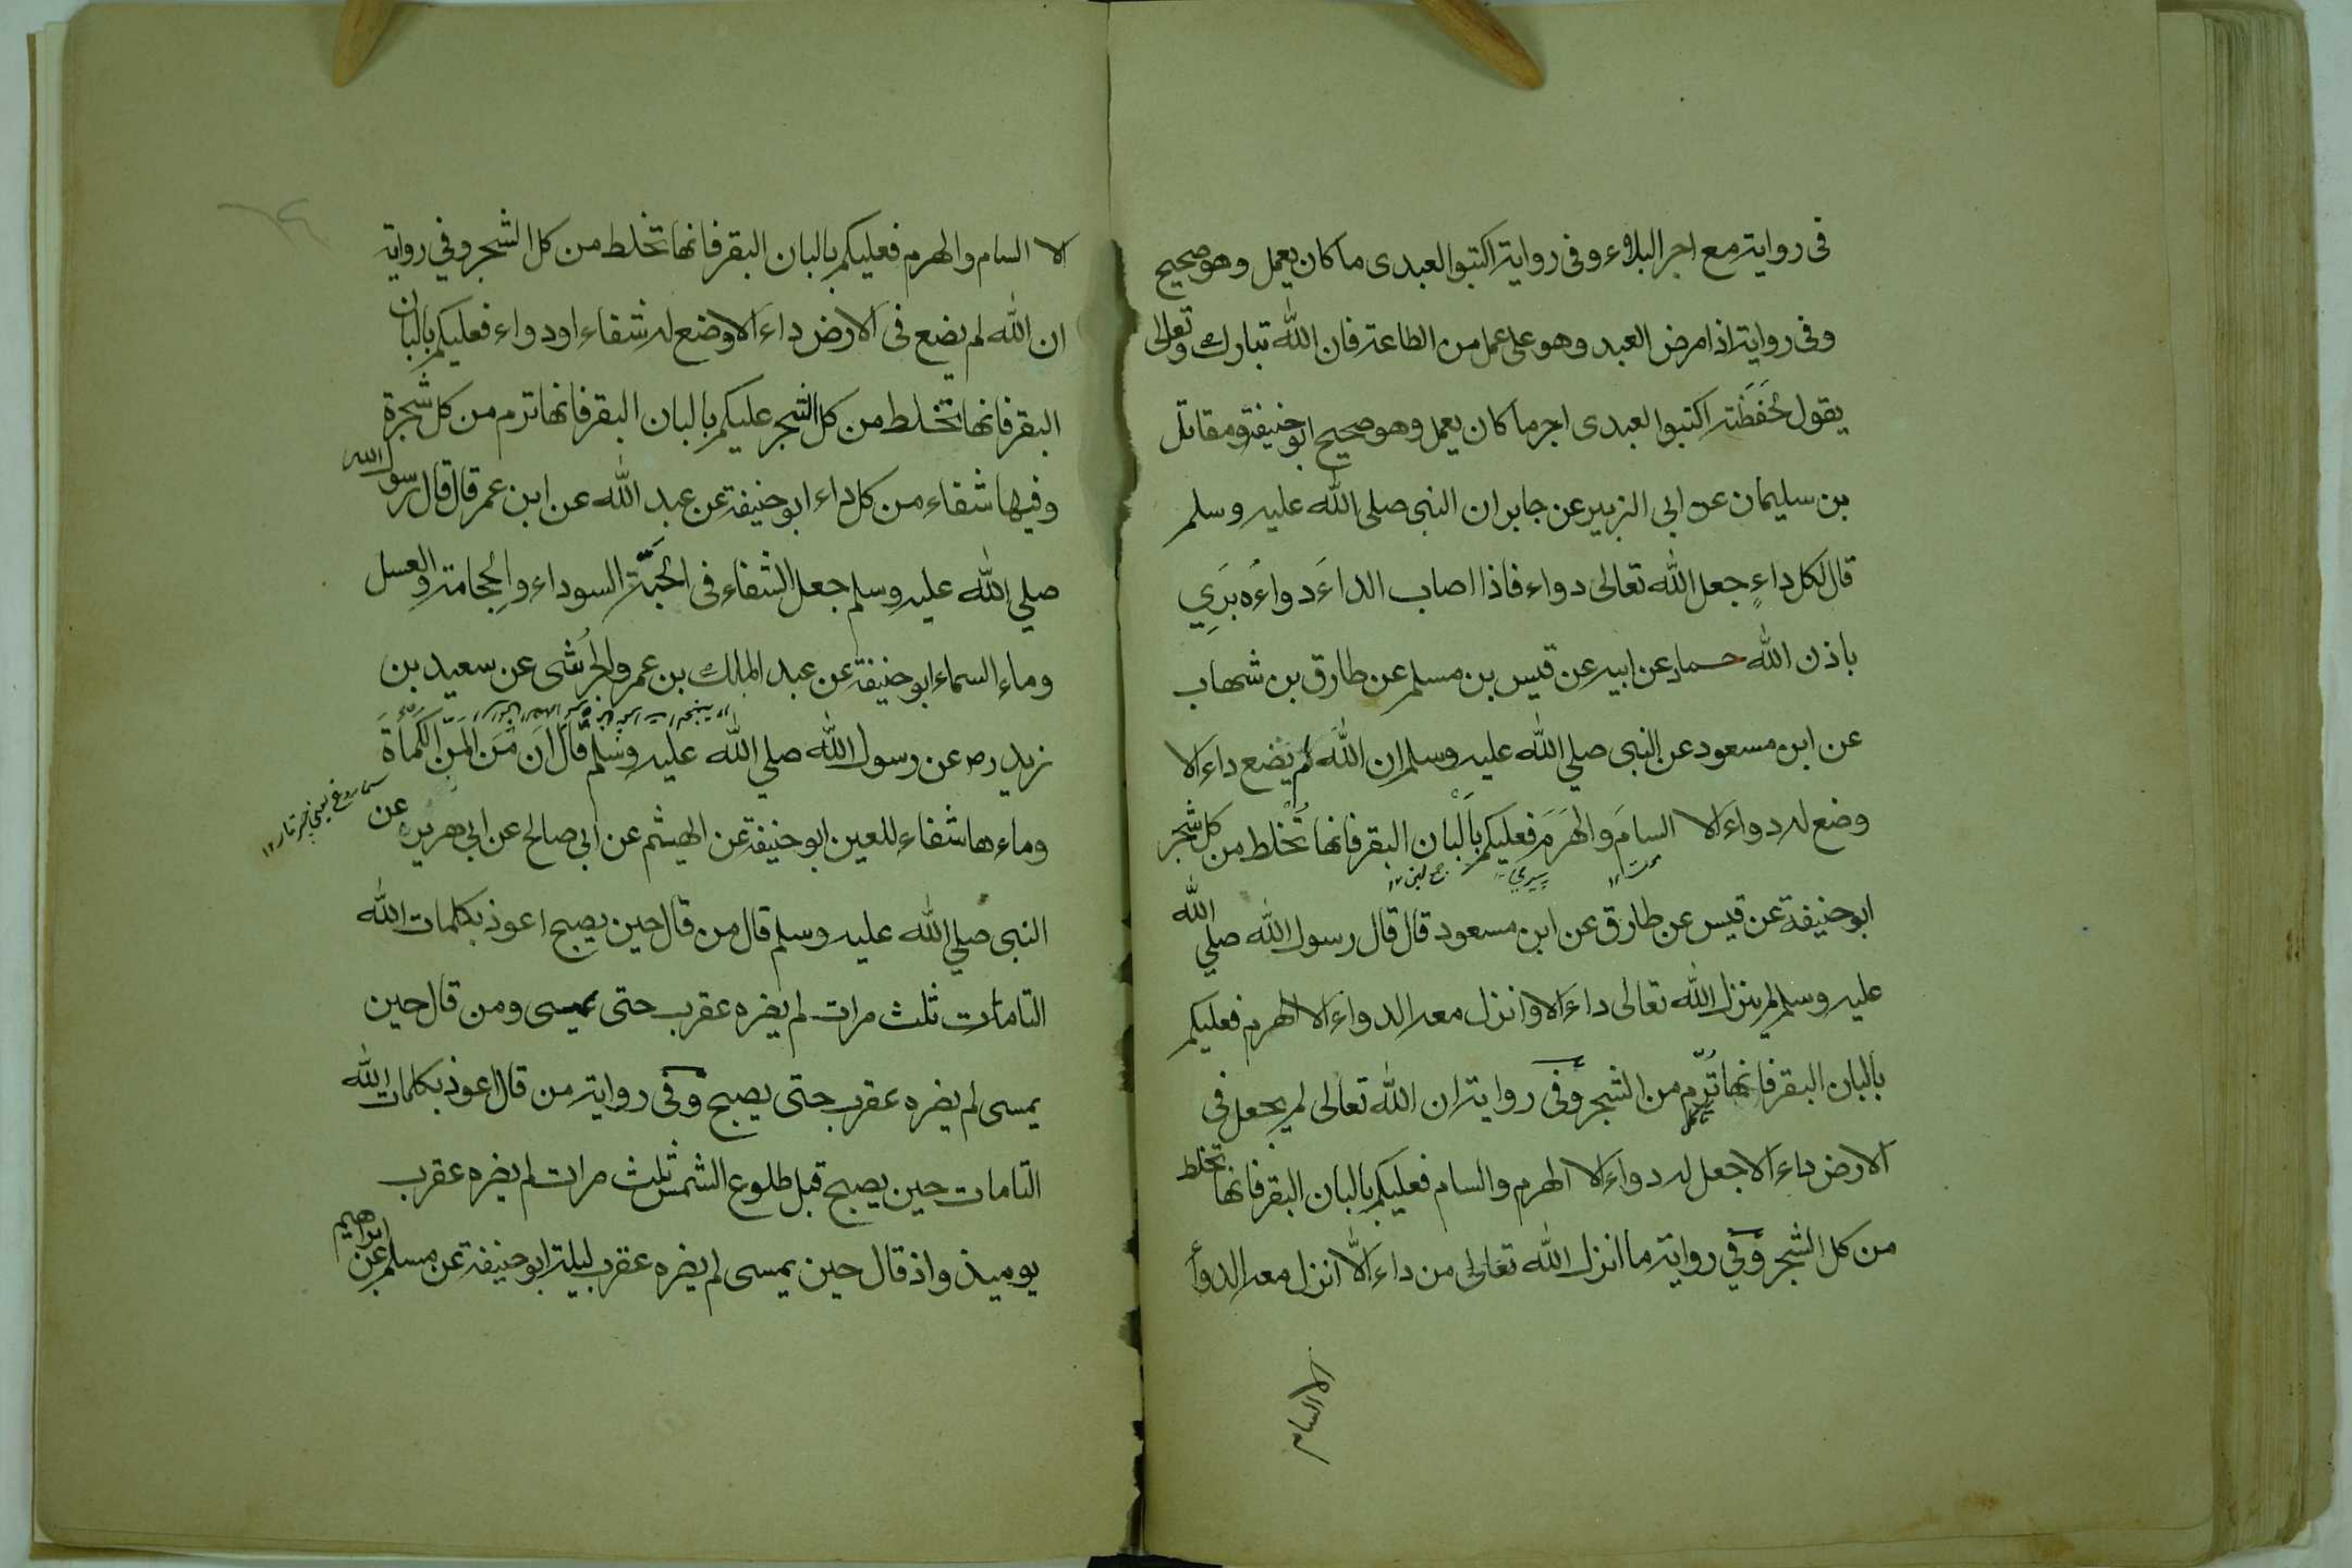 فى رواية مع اجر البلاء وفى رواية اكتبوا لعبدى ما كان يعمل وهو صحيح
وفى رواية اذا مرض العبد وهو على عمل من الطاعة فان الله تبارك وتعالى
يقول لحفظته اكتبوا لعبدى اجر ما كان يعمل وهو صحيح ابو حنيفة ومقاتل
بن سليمان عن ابى الزبير عن جابر ان النبى صلى الله عليه وسلم
قال لكل داءٍ جعل الله تعالى دواء فاذا اصاب الداءَ دواءُه بَرِي
باذن الله حماد عن ابيه عن قيس بن مسلم عن طارق بن شهاب
عن ابن مسعود عن النبى صلي الله عليه وسلم ان الله لم يضع داء الا
وضع له دواء الا السامَ والهَرَمَ فعليكم بأَلْبان البقر فانها تُخْلط من كل شجر
موت ١٢ پیري ١٢ جمع لبن ١٢
ابو حنيفة عن قيس عن طارق عن ابن مسعود قال قال رسول الله صلي الله
عليه وسلم لم ينزل الله تعالى داء الا وانزل معه الدواء الا الهرم فعليكم
بالبان البقر فانها تُرّم من الشجر وفى رواية ان الله تعالى لم يجعل فى
الارض داء الا جعل له دواء الا الهرم والسام فعليكم بالبان البقر فانها تخلط
من كل الشجر وفي رواية ما انزل الله تعالى من داء الّا انزل معه الدوأ
الا السام
الا السام والهرم فعليكم بالبان البقر فانها تخلط من كل الشجر وفي رواية
ان الله لم يضع فى الارض داء الا وضع له شفاء او دواء فعليكم بالبان
البقر فانها تخلط من كل الشجر عليكم بالبان البقر فانها ترم من كل شجرة
وفيها شفاء من كل داء ابو حنيفة عن عبد الله عن ابن عمر قال قال رسول الله
صلي الله عليه وسلم جعل الشفاء فى الحَبَّة السوداء والحجامة والعسل
وماء السماء ابو حنيفة عن عبد الملك بن عمرو الجُرَشى عن سعيد بن
زيد رض عن رسول الله صلي الله عليه وسلم قال ان مَن المَنّ الكَمأةَ
وماءها شفاء للعين ابو حنيفة عن الهيثم عن ابى صالح عن ابى هريره عن
النبى صلي الله عليه وسلم قال من قال حين يصبح اعوذ بكلمات الله
التامات ثلث مرات لم يضره عقرب حتى يمسى ومن قال حين
يمسى لم يضره عقرب حتى يصبح وفى رواية من قال اعوذ بكلمات الله
التامات حين يصبح قبل طلوع الشمس ثلث مرات لم يضره عقرب
يوميذ واذ قال حين يمسى لم يضره عقرب ليلة ابو حنيفة عن مسلم عن ابراهيم